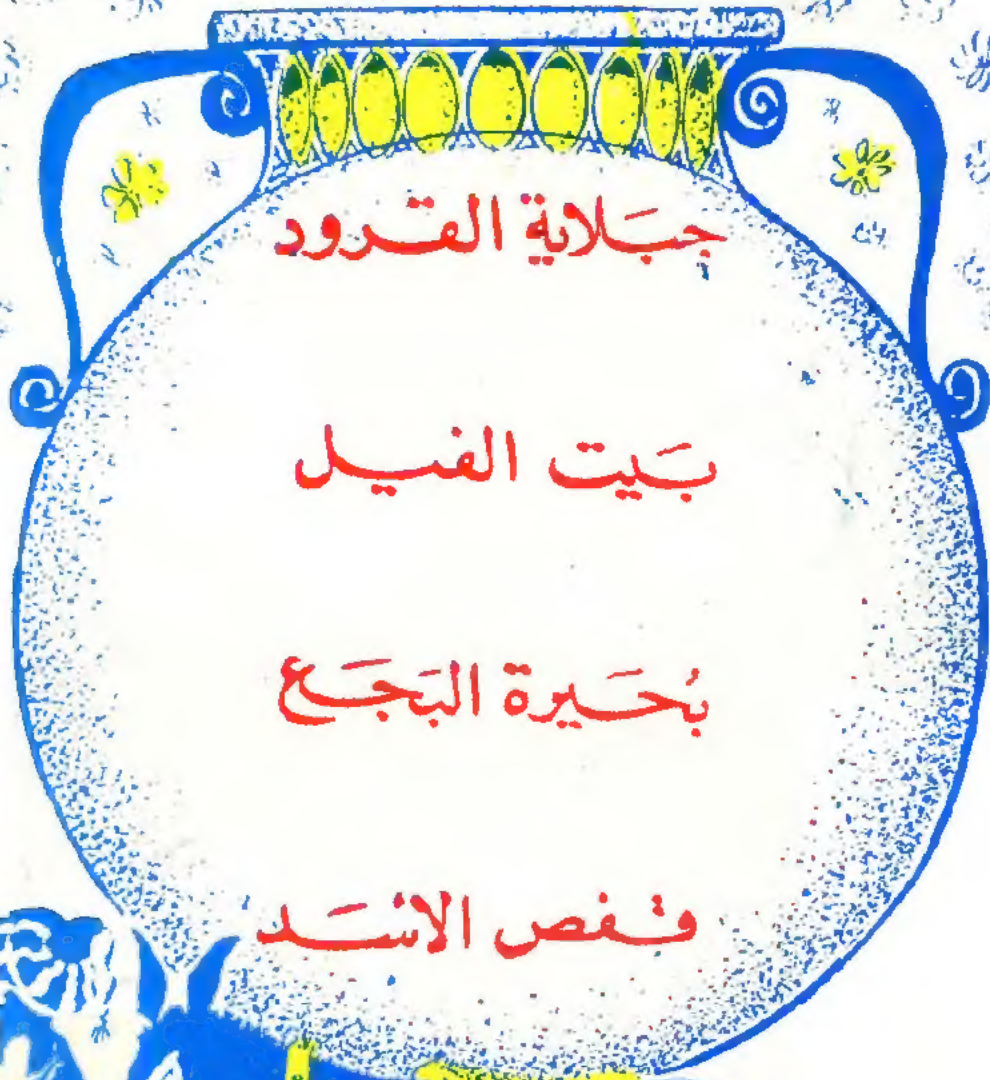 جبَلاية القرود
بَيت الفيل
بُحَيرة البَجَع
قفص الاسَد